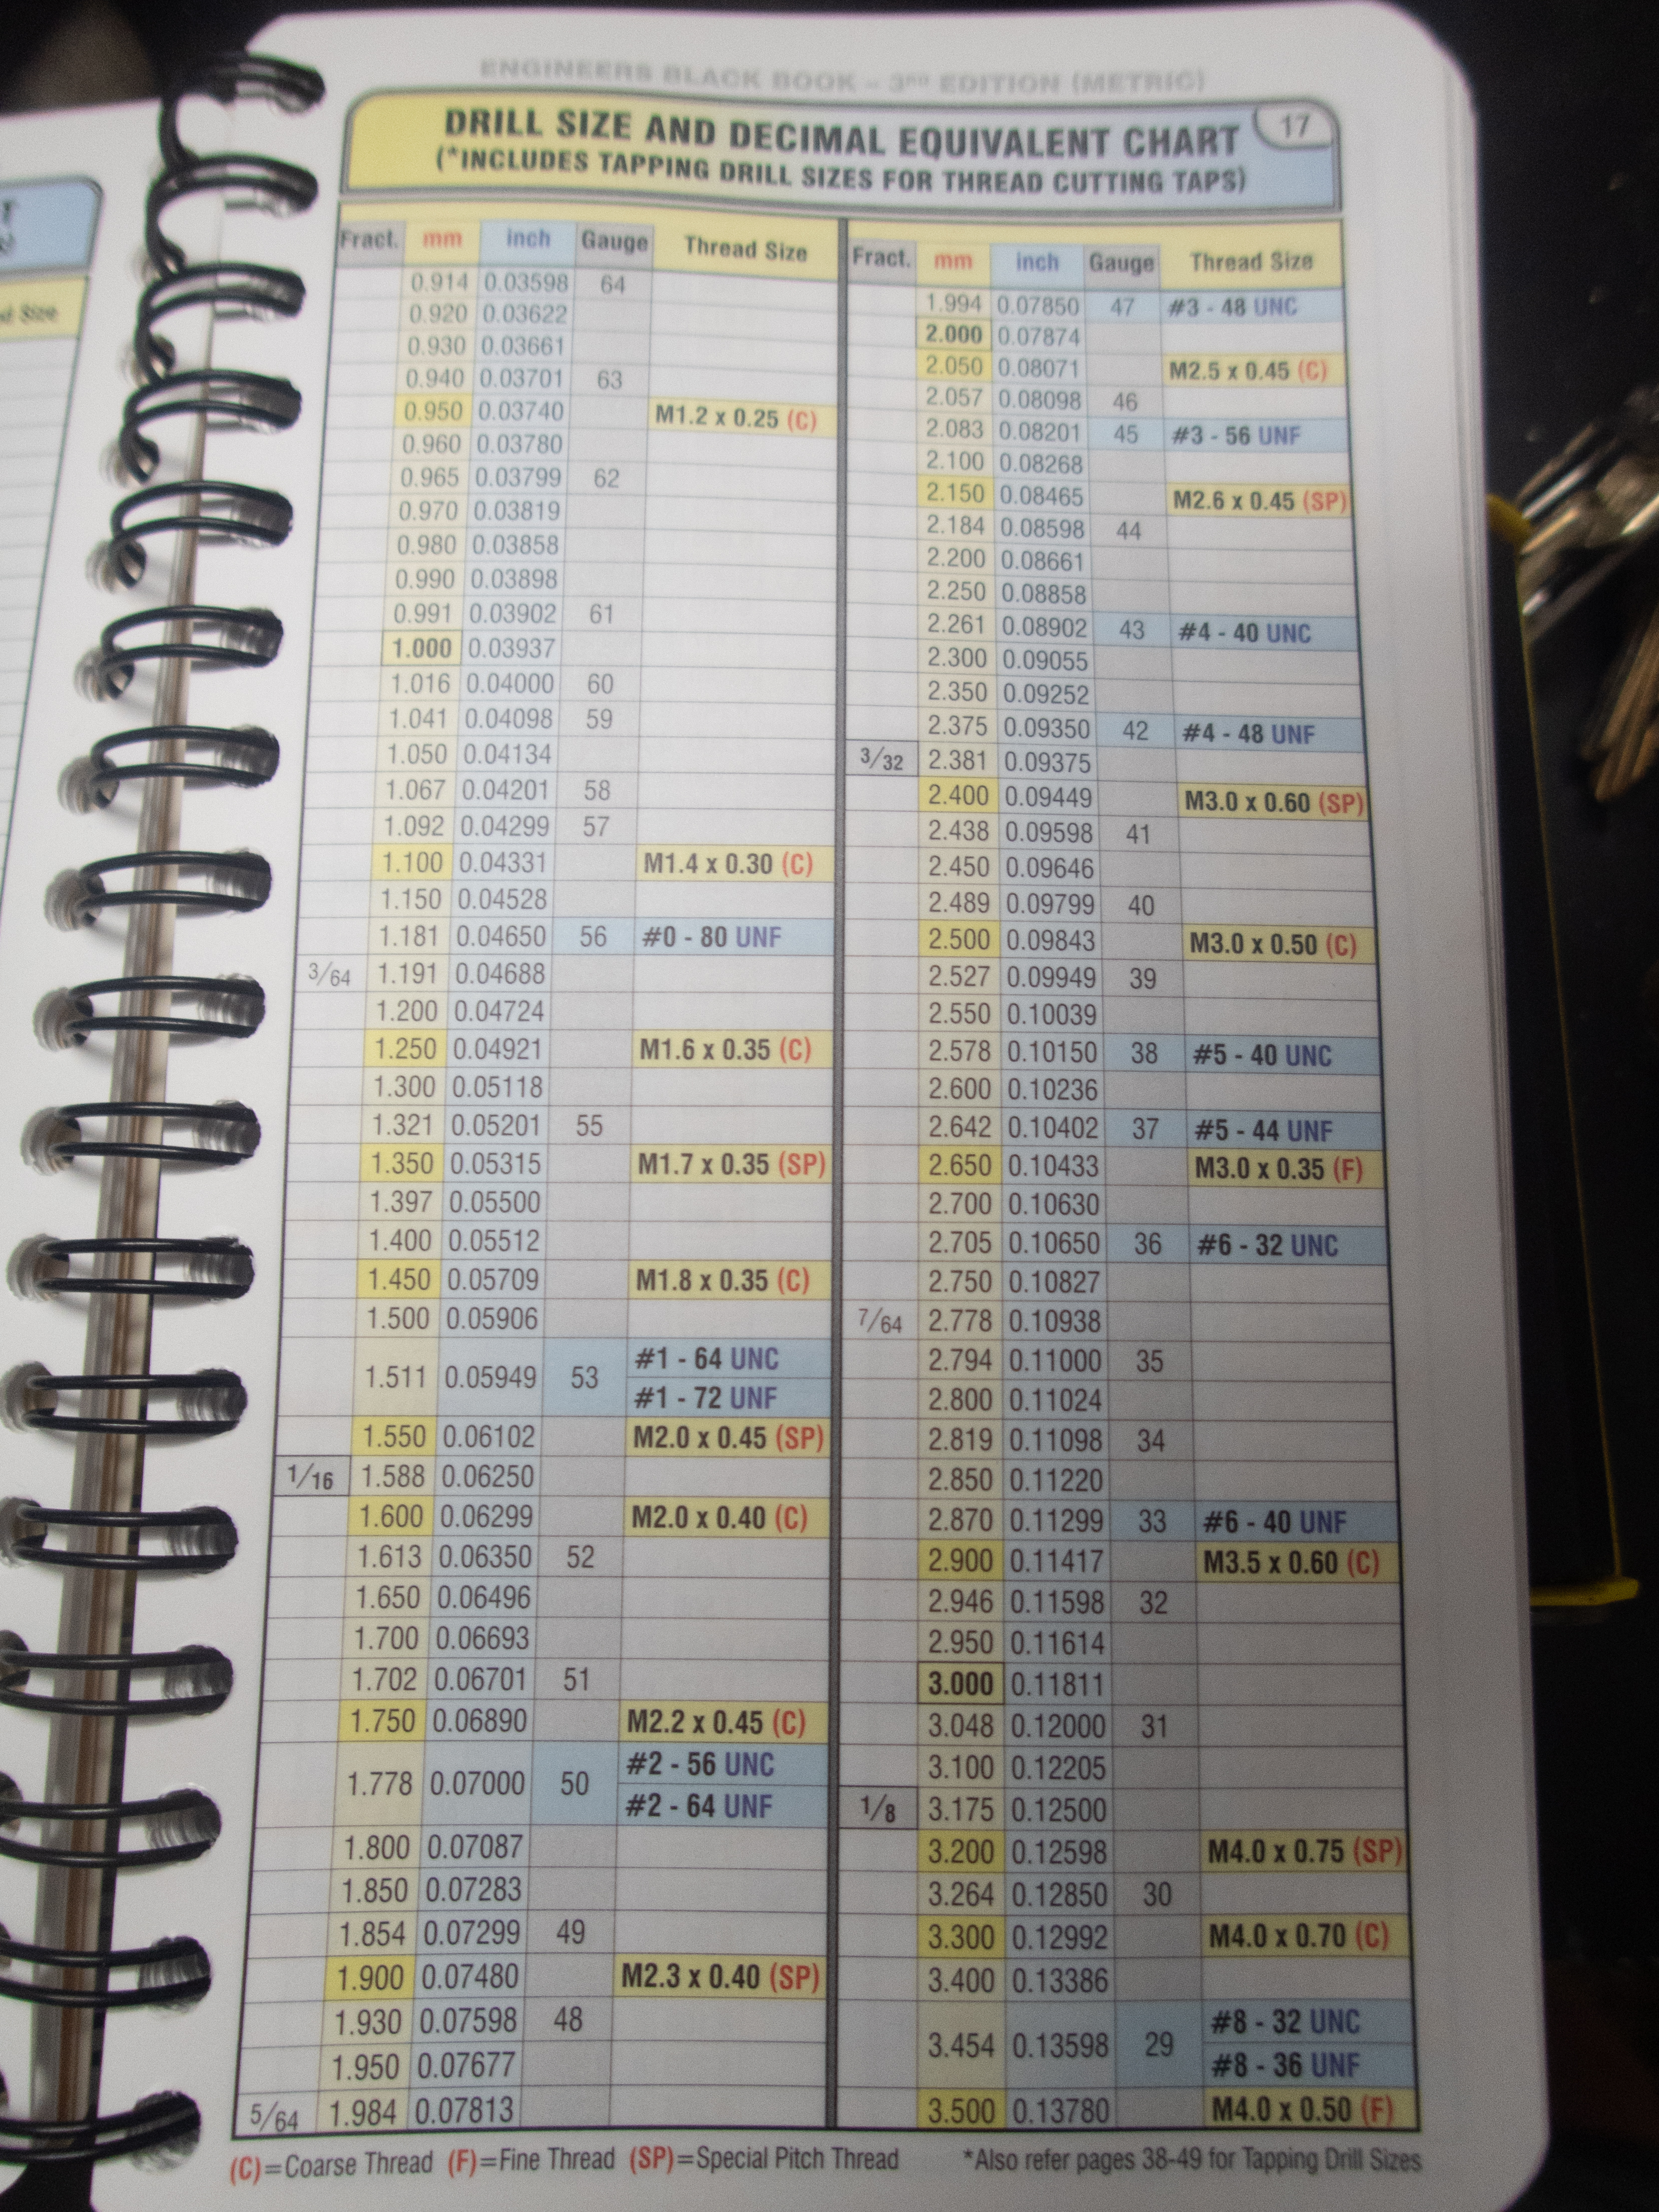 Size
ENGINEERS BLACK BOOK – 3RD EDITION (METRIC)
DRILL SIZE AND DECIMAL EQUIVALENT CHART
(*INCLUDES TAPPING DRILL SIZES FOR THREAD CUTTING TAPS)
17
Fract. mm inch Gauge Thread Size
0.914 0.03598 64
0.920 0.03622
0.930 0.03661
0.940 0.03701 63
0.950 0.03740 M1.2 x 0.25 (C)
0.960 0.03780
0.965 0.03799 62
0.970 0.03819
0.980 0.03858
0.990 0.03898
0.991 0.03902 61
1.000 0.03937
1.016 0.04000 60
1.041 0.04098 59
1.050 0.04134
1.067 0.04201 58
1.092 0.04299 57
1.100 0.04331 M1.4 x 0.30 (C)
1.150 0.04528
1.181 0.04650 56 #0 - 80 UNF
3/64 1.191 0.04688
1.200 0.04724
1.250 0.04921 M1.6 x 0.35 (C)
1.300 0.05118
1.321 0.05201 55
1.350 0.05315 M1.7 x 0.35 (SP)
1.397 0.05500
1.400 0.05512
1.450 0.05709 M1.8 x 0.35 (C)
1.500 0.05906
1.511 0.05949 53 #1 - 64 UNC
#1 - 72 UNF
1.550 0.06102 M2.0 x 0.45 (SP)
1/16 1.588 0.06250
1.600 0.06299 M2.0 x 0.40 (C)
1.613 0.06350 52
1.650 0.06496
1.700 0.06693
1.702 0.06701 51
1.750 0.06890 M2.2 x 0.45 (C)
1.778 0.07000 50 #2 - 56 UNC
#2 - 64 UNF
1.800 0.07087
1.850 0.07283
1.854 0.07299 49
1.900 0.07480 M2.3 x 0.40 (SP)
1.930 0.07598 48
1.950 0.07677
5/64 1.984 0.07813
Fract. mm inch Gauge Thread Size
1.994 0.07850 47 #3 - 48 UNC
2.000 0.07874
2.050 0.08071 M2.5 x 0.45 (C)
2.057 0.08098 46
2.083 0.08201 45 #3 - 56 UNF
2.100 0.08268
2.150 0.08465 M2.6 x 0.45 (SP)
2.184 0.08598 44
2.200 0.08661
2.250 0.08858
2.261 0.08902 43 #4 - 40 UNC
2.300 0.09055
2.350 0.09252
2.375 0.09350 42 #4 - 48 UNF
3/32 2.381 0.09375
2.400 0.09449 M3.0 x 0.60 (SP)
2.438 0.09598 41
2.450 0.09646
2.489 0.09799 40
2.500 0.09843 M3.0 x 0.50 (C)
2.527 0.09949 39
2.550 0.10039
2.578 0.10150 38 #5 - 40 UNC
2.600 0.10236
2.642 0.10402 37 #5 - 44 UNF
2.650 0.10433 M3.0 x 0.35 (F)
2.700 0.10630
2.705 0.10650 36 #6 - 32 UNC
2.750 0.10827
7/64 2.778 0.10938
2.794 0.11000 35
2.800 0.11024
2.819 0.11098 34
2.850 0.11220
2.870 0.11299 33 #6 - 40 UNF
2.900 0.11417 M3.5 x 0.60 (C)
2.946 0.11598 32
2.950 0.11614
3.000 0.11811
3.048 0.12000 31
3.100 0.12205
1/8 3.175 0.12500
3.200 0.12598 M4.0 x 0.75 (SP)
3.264 0.12850 30
3.300 0.12992 M4.0 x 0.70 (C)
3.400 0.13386
3.454 0.13598 29 #8 - 32 UNC
#8 - 36 UNF
3.500 0.13780 M4.0 x 0.50 (F)
(C)=Coarse Thread (F)=Fine Thread (SP)=Special Pitch Thread *Also refer pages 38-49 for Tapping Drill Sizes